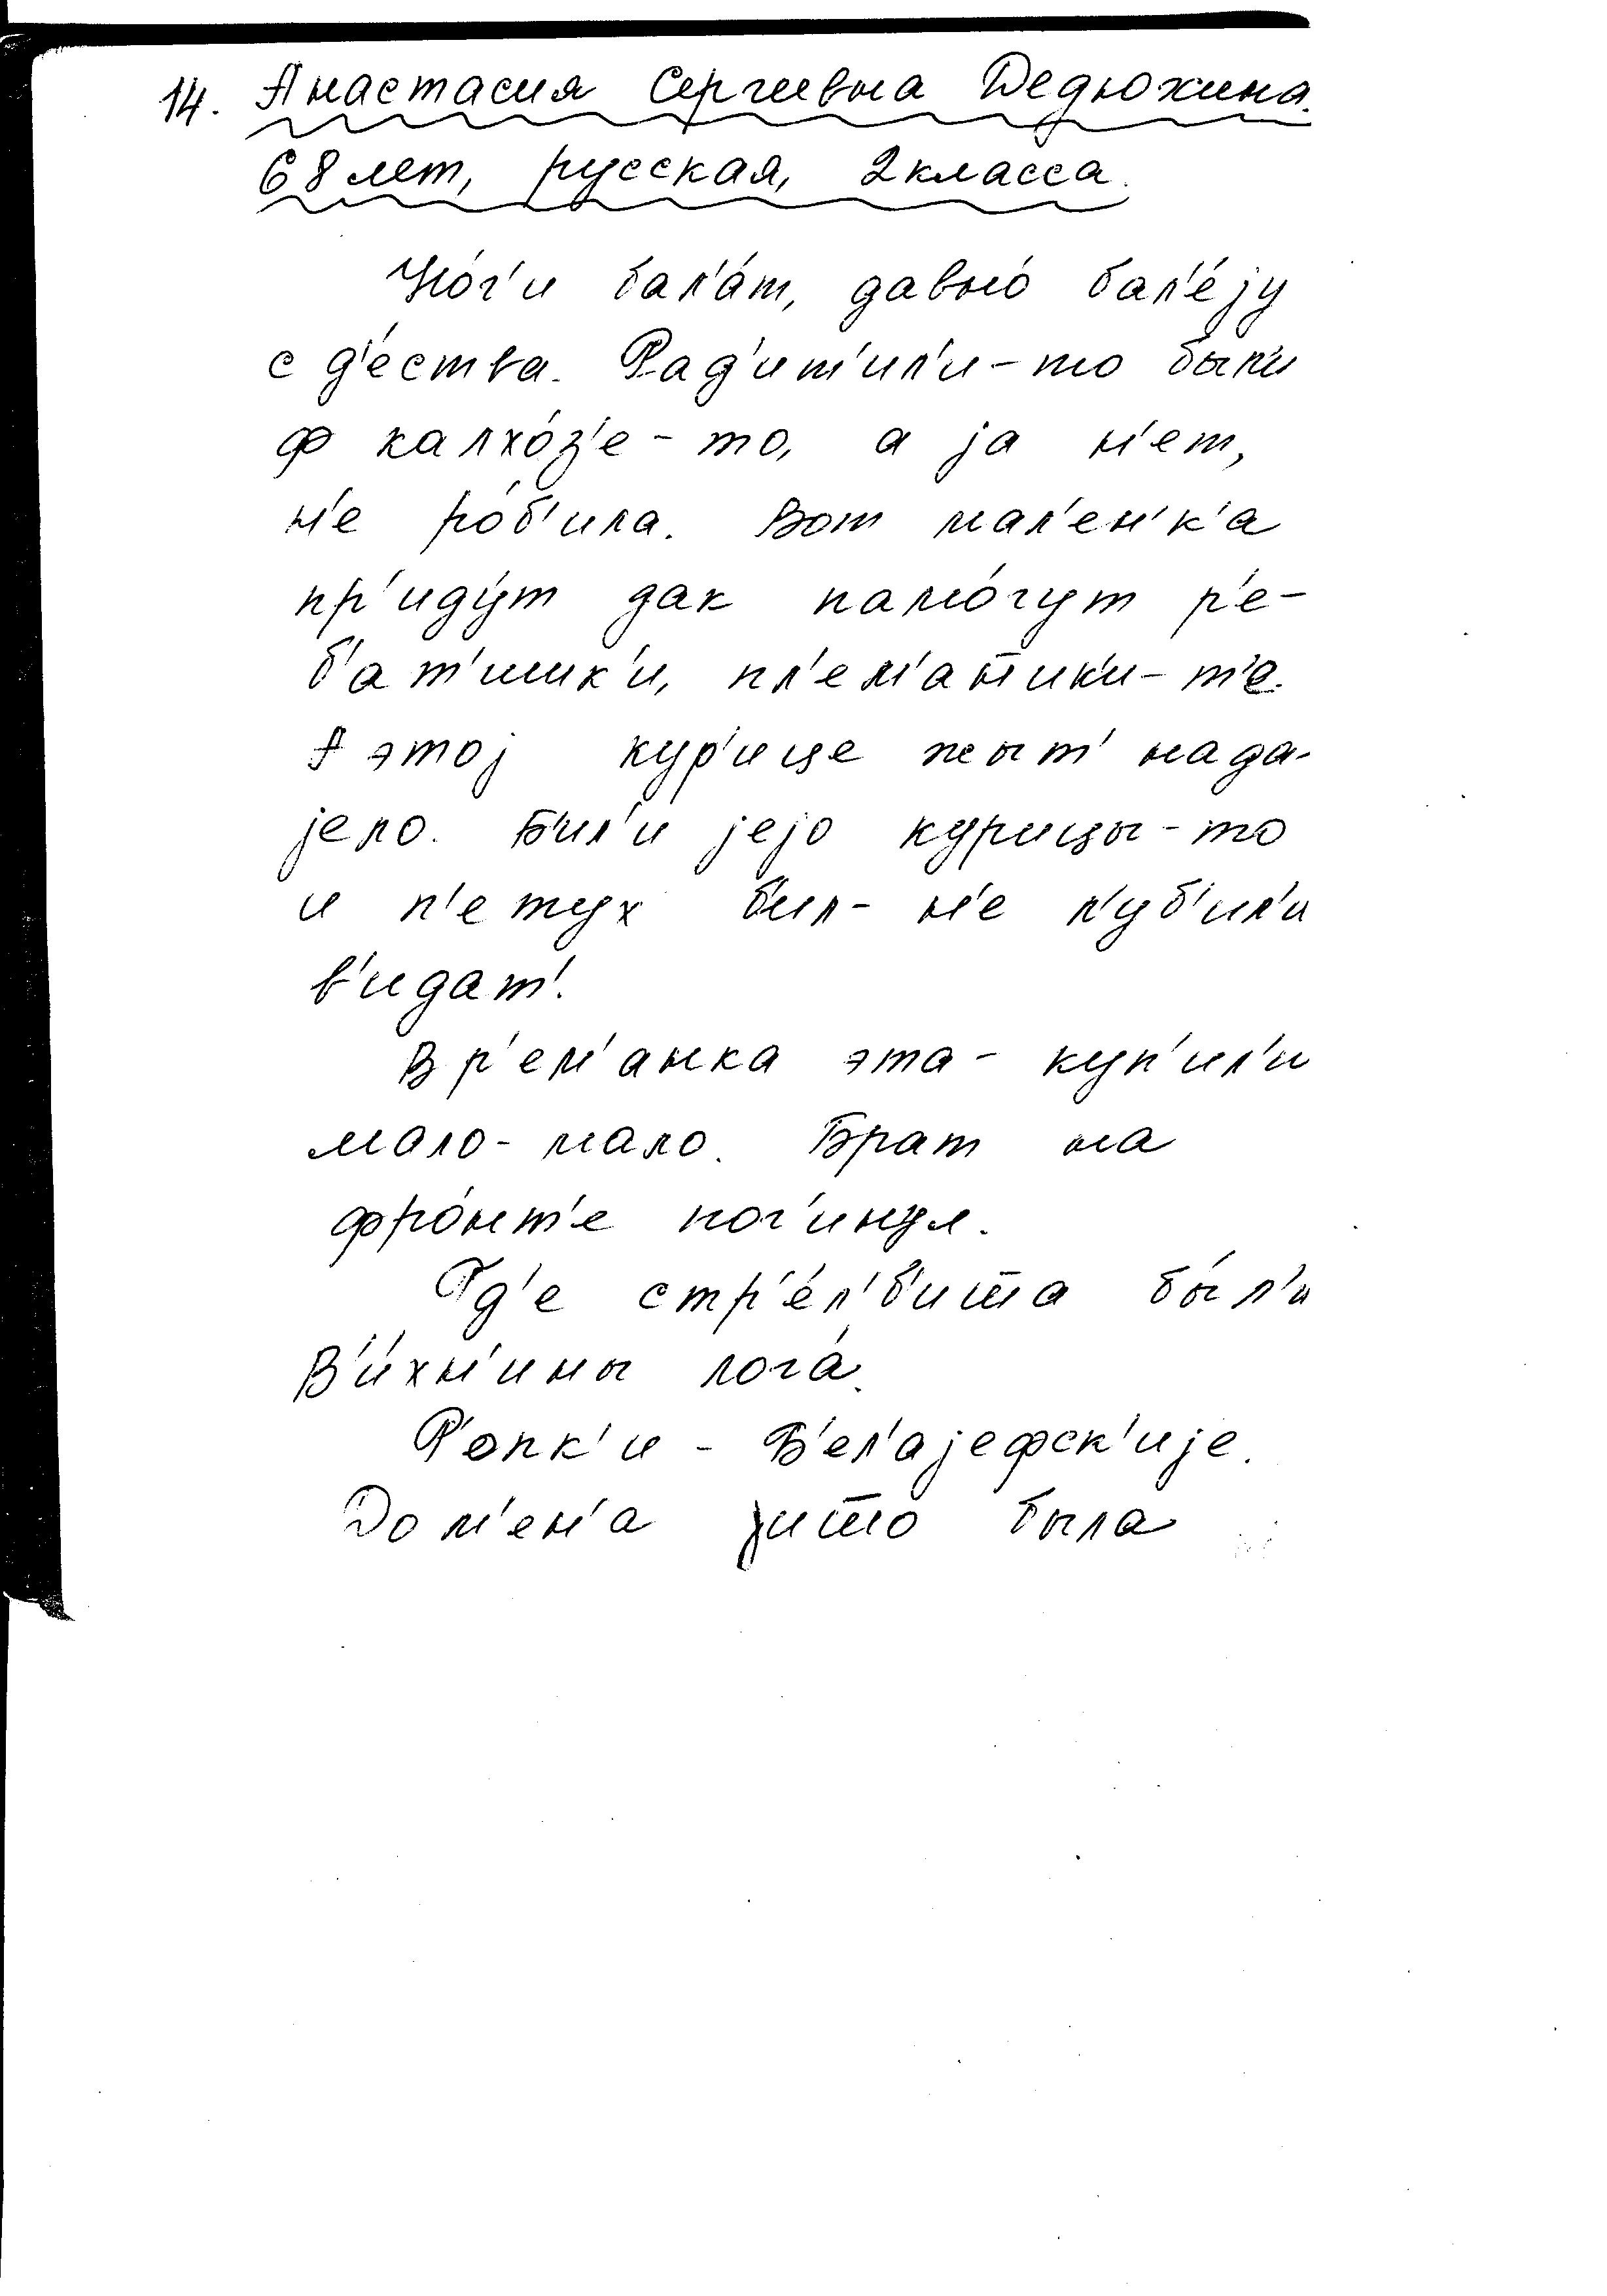 14. Анастасия Сергеевна Дедюхина.
68 лет, русская, 2 класса.
Но́г'и бал'а́т, давно́ бал'е́jу
с д'е́ства. Рад'ит'ил'и-то был'и
ф калхо́з'е-то, а jа н'ет,
н'е ро́б'ила. Вот мал'ен'к'а
пр'иду́т дак памо́гут р'е-
б'ат'ишк'и, пл'ем'аш'ик'и-т'е.
А этоj кур'ице жыт' нада-
jело. Б'ил'и jеjо курицы-то
и п'етух б'ил- н'е л'уб'ил'и
в'идат'.
Вр'ем'анка эта- куп'ил'и
мало-мало. Брат на
фро́нт'е пог'инул.
Гд'е стр'е́л'б'иш̅а бы́л'и
В'и́хн'ины лога́.
Р'опк'и - Б'ел'аjефск'иjе.
Дом'ен'а jиш̅о была